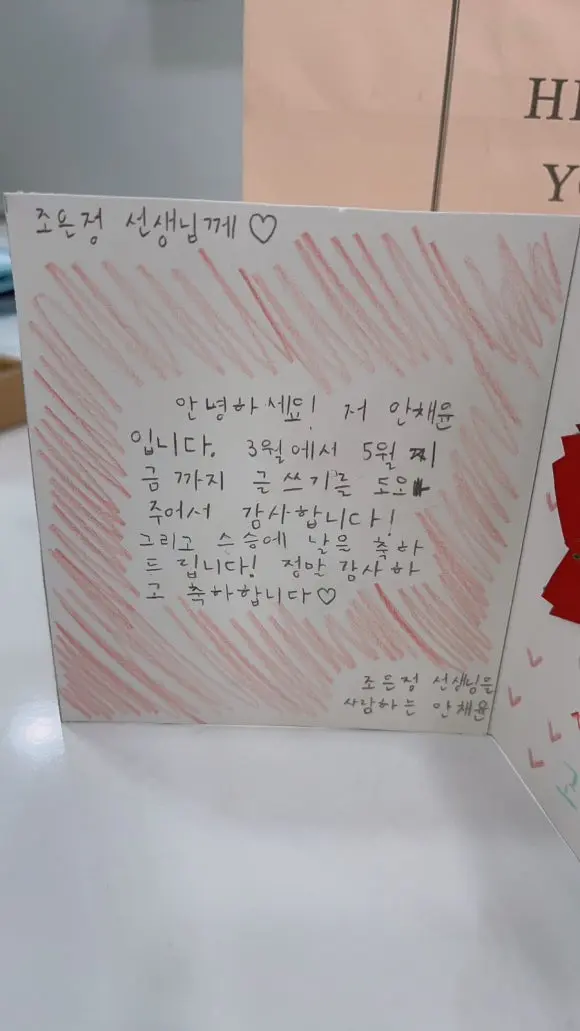 HE
YO
조은정 선생님께 ♡
안녕하세요! 저 안채윤
입니다. 3월에서 5월 찌
금까지 글쓰기를 도와
주어서 감사합니다!
그리고 스승에 날을 축하
드립니다! 정말 감사하
고 축하합니다♡
조은정 선생님을
사랑하는 안채윤